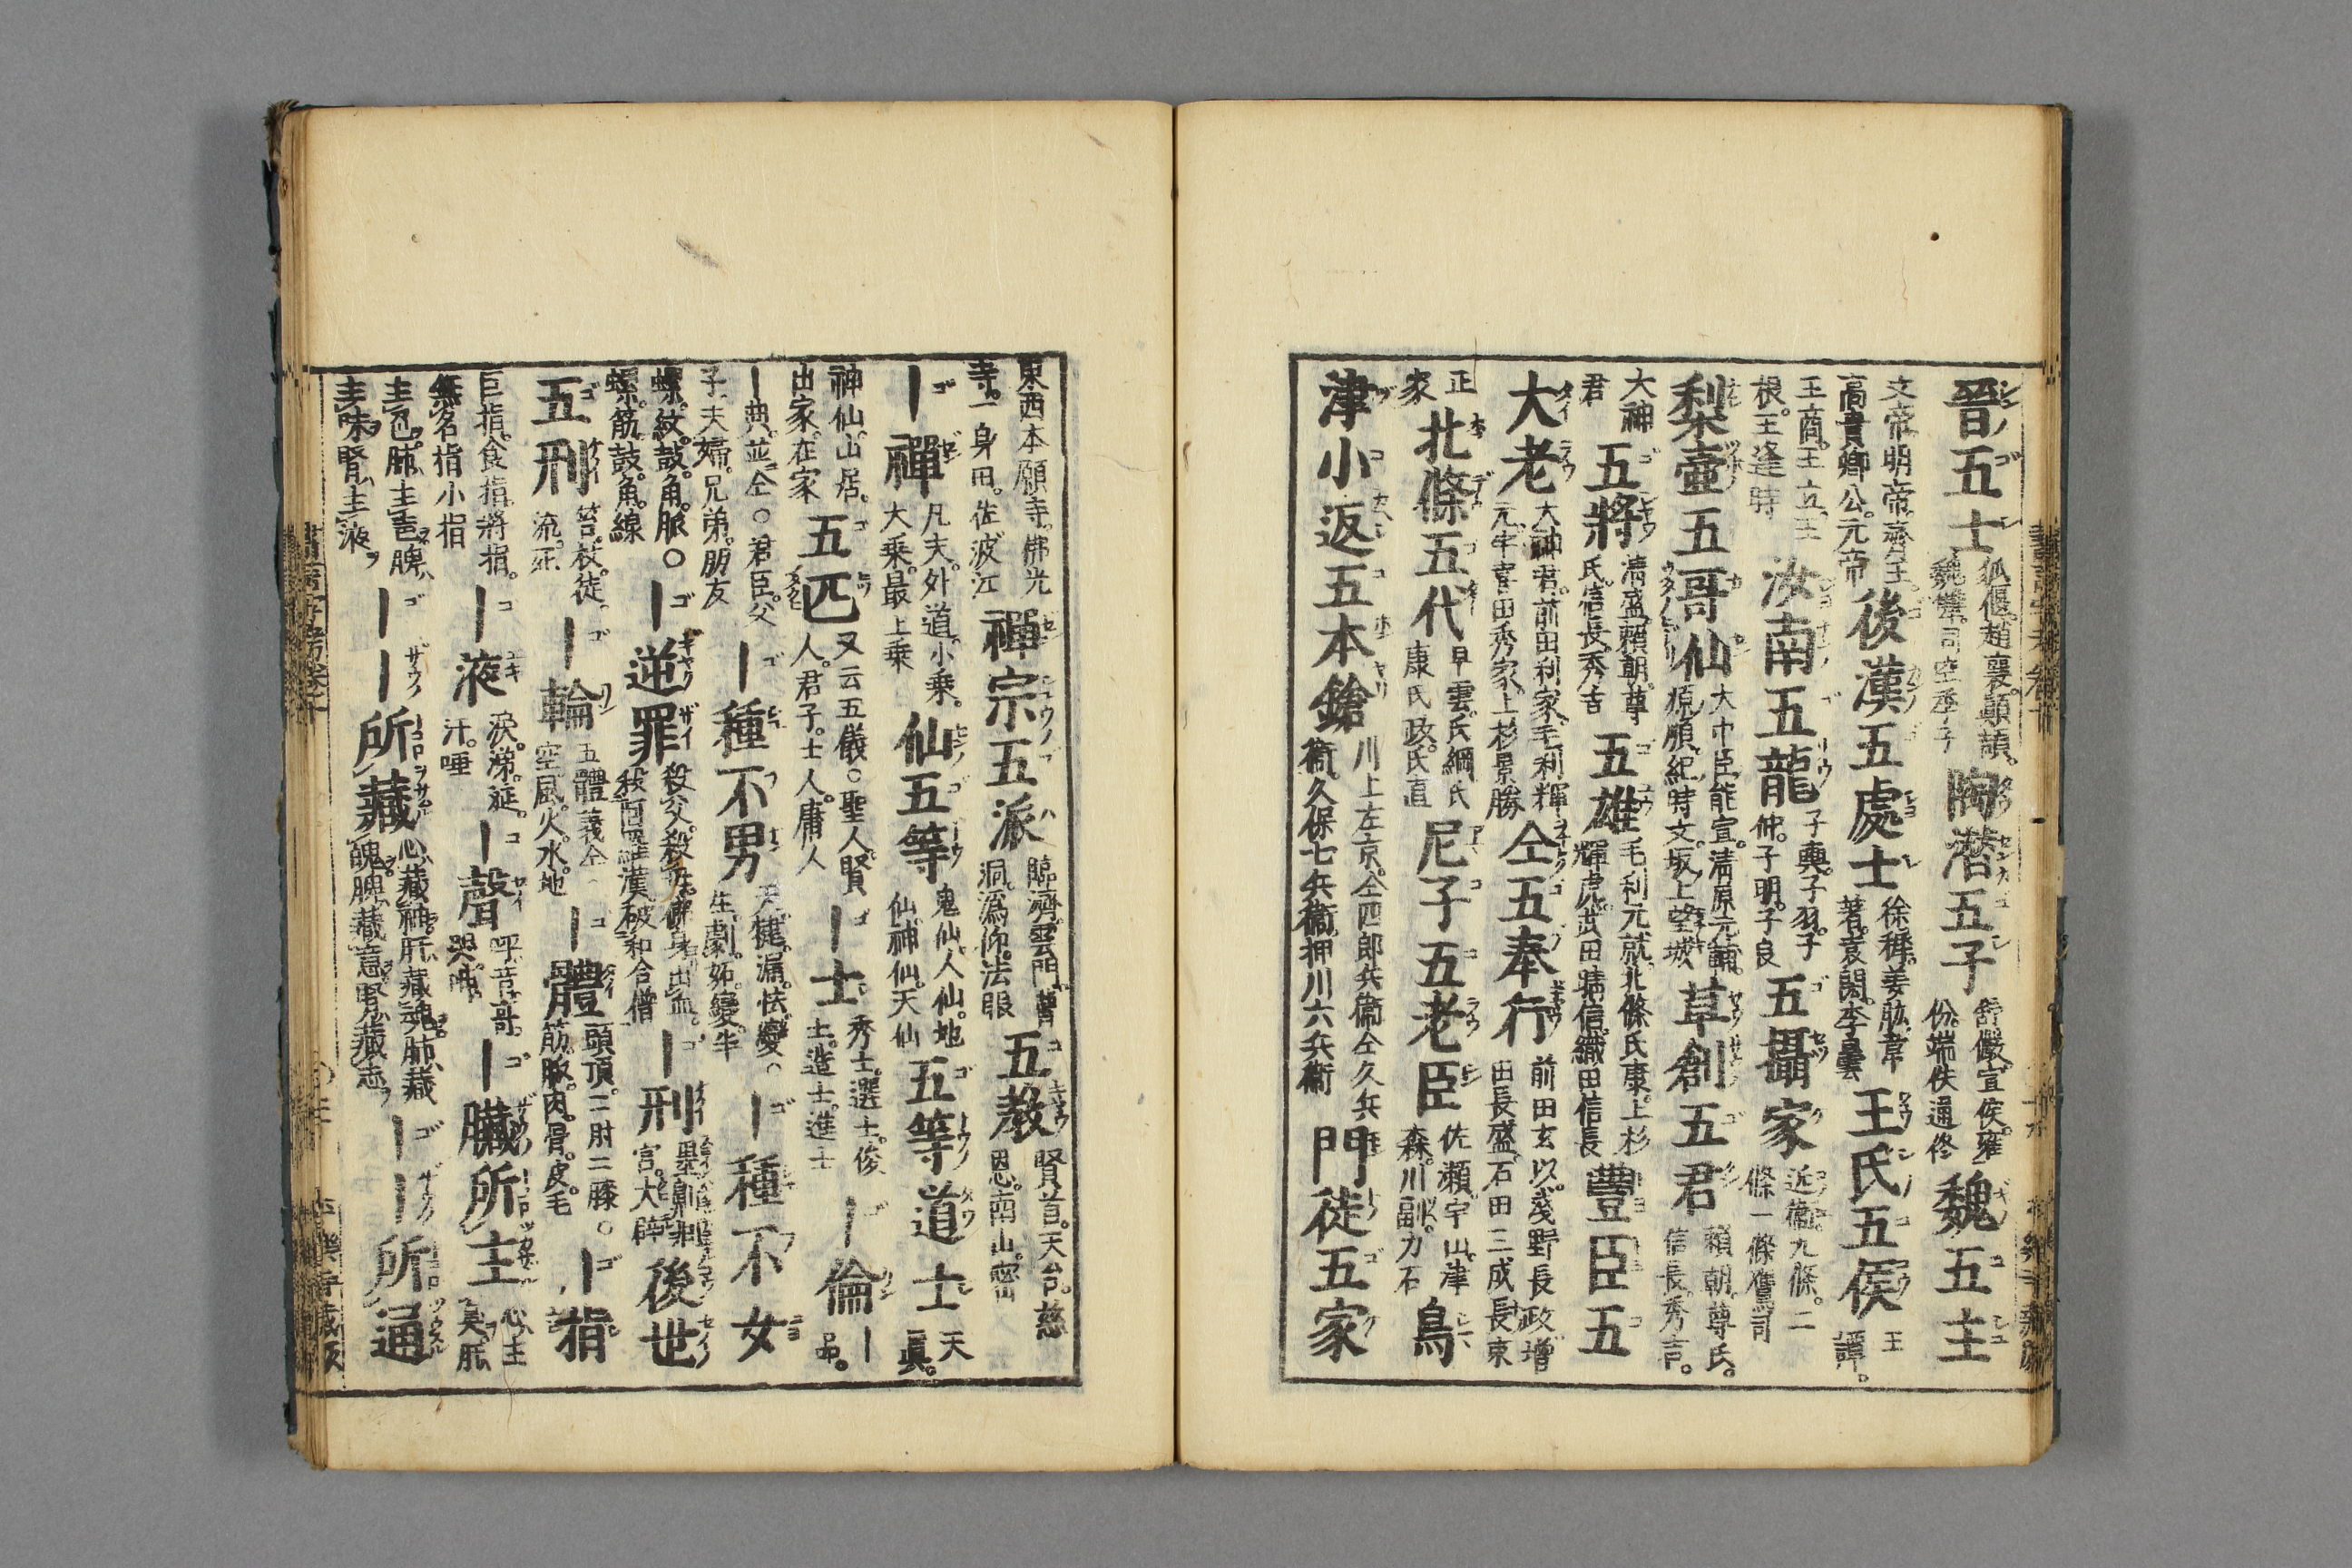 晉五士 狐偃。趙襄。顛頡。魏犨。司空季子 陶潜五子 舒儼。宣俟。雍份。端佚。通佟 魏五主
文帝。明帝。齊王。高貴卿公。元帝 後漢五處士 徐穉。姜肱。韋著。袁閎。李曇 王氏五侯 王譚。
王商。王立。王根。王逢時 汝南五龍 子輿。子羽。子仲。子明。子良 五攝家 近衛。九條。二條一條鷹司
梨壷五哥仙 大中臣能宣。清原元輔。源順。紀時文。坂上望城 草創五君 頼朝。尊氏。信長。秀吉。
大神君 五將 清盛。頼朝。尊氏。信長。秀吉 五雄 毛利元就。北條氏康。上杉輝虎。武田晴信。織田信長 豐臣五
大老 大神君。前田利家。毛利輝元。宇喜田秀家。上杉景勝 仝五奉行 前田玄以。浅野長政。増田長盛。石田三成。長束
正家 北條五代 早雲。氏綱。氏康。氏政。氏直 尼子五老臣 佐瀬。宇山。津森。川副。力石 鳥
津小返五本鎗 川上左京。仝四郎兵衞。仝久兵衞。久保七兵衞。押川六兵衞 門徒五家
東西本願寺。佛光寺。一身田。佐波江 禪宗五派 臨濟。雲門。曹洞。潙仰。法眼 五教 賢首。天台。慈恩。南山。密
｜禪 凡夫。外道。小乗。大乗。最上乗 仙五等 鬼仙。人仙。地仙。神仙。天仙 五等道士 天真。
神仙。山居。出家。在家 五匹 又云五儀○聖人。賢人。君子。士人。庸人 ｜士 秀士。選士。俊士。造士。進士 ｜倫 ｜品。
｜典。並仝○君臣。父子。夫婦。兄弟。朋友 ｜種不男 天。揵。漏。怯。變○生。劇。妬。變。半 ｜種不女
螺。紋。鼓。角。脈○螺。筋。鼓。角。線 ｜逆罪 殺父。殺母。佛身出血。殺阿羅漢。破和合僧 ｜刑 墨。劓。剕。宮。大辟 後世
五刑 笞。杖。徒。流。死 ｜輪 五體義仝 空。風。火。水。地 ｜體 頭頂。二肘二膝○筋。脈。肉。骨。皮毛 ｜指
巨指。食指。將指。無名指小指 ｜液 涙。涕。涎。汗。唾 ｜聲 呼。言。哥。哭。呻 ｜臟所主 心主臭。肝
主色。肺主聲。脾主味。腎主液 ｜｜所藏 心藏神。肝藏魂。肺藏魄。脾藏意。腎藏志。 ｜｜所通